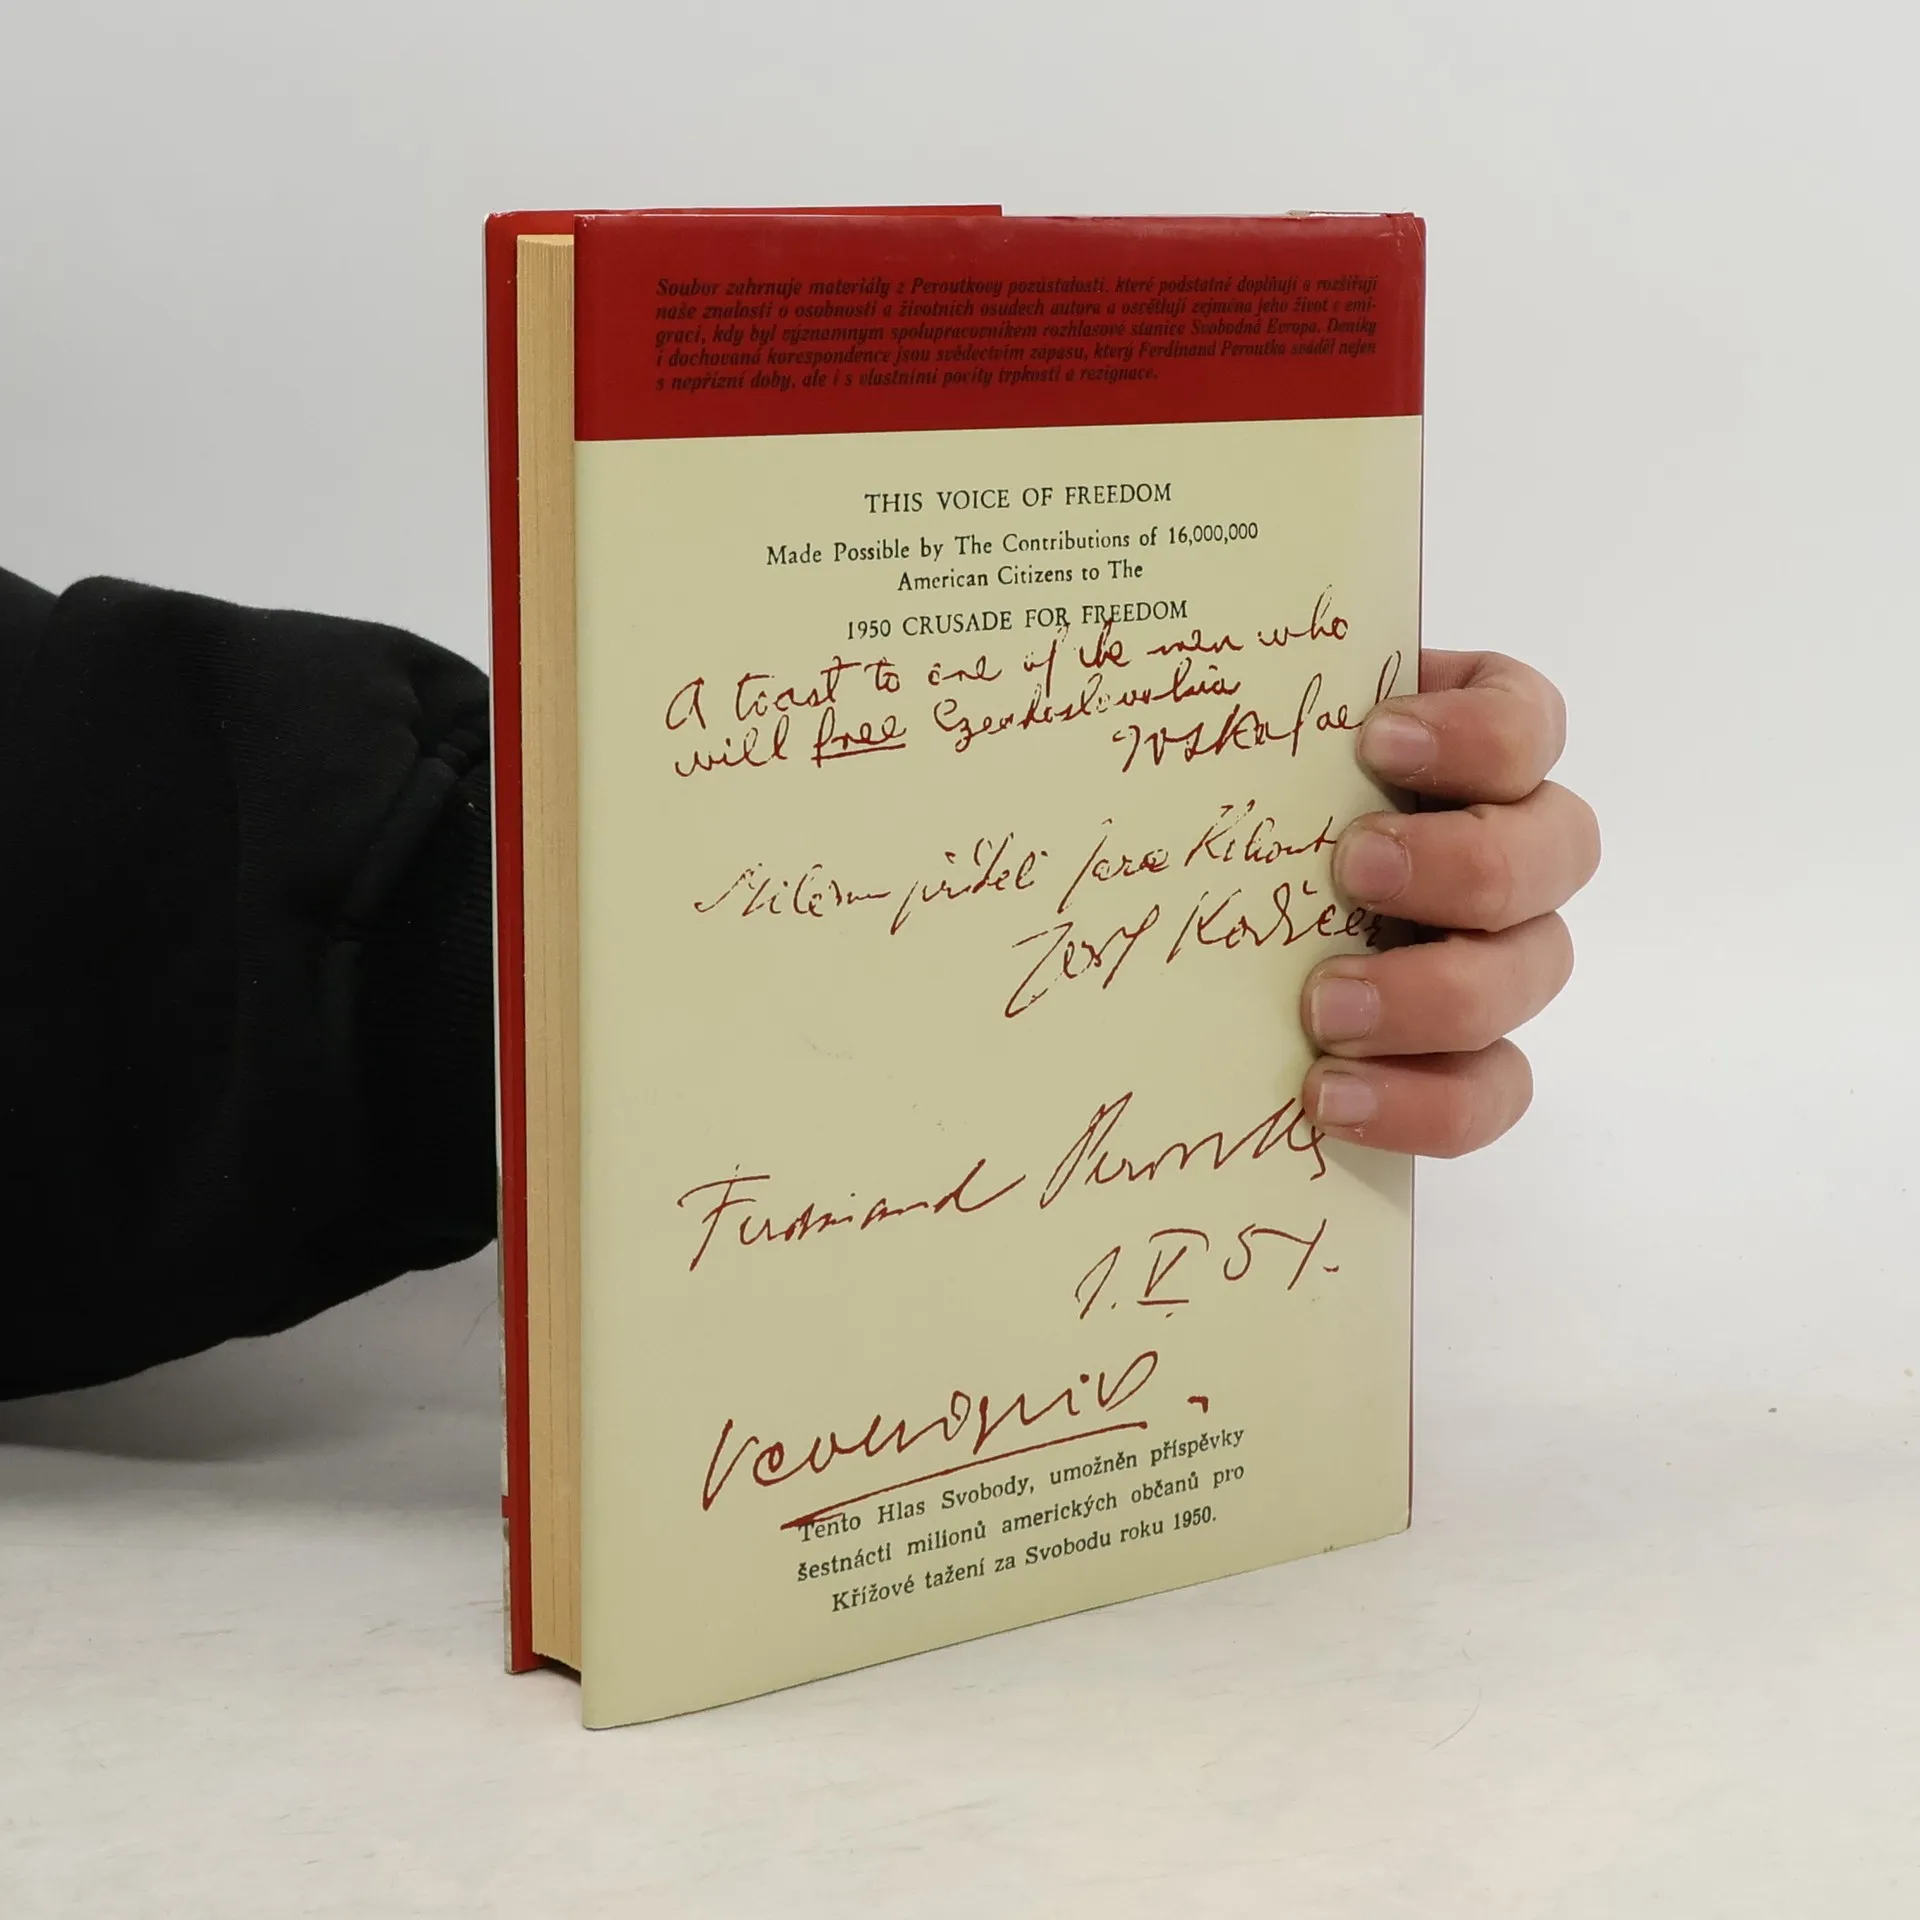 Soubor zahrnuje materiály z Peroutkovy pozůstalosti, které podstatně doplňují a rozšiřují
naše znalosti o osobnosti a životních osudech autora a osvětlují zejména jeho život v emi-
graci, kdy byl významným spolupracovníkem rozhlasové stanice Svobodná Evropa. Deníky
i dochovaná korespondence jsou svědectvím zápasu, který Ferdinand Peroutka sváděl nejen
s nepřízní doby, ale i s vlastními pocity trpkosti a rezignace.
THIS VOICE OF FREEDOM
Made Possible by The Contributions of 16,000,000
American Citizens to The
1950 CRUSADE FOR FREEDOM
A toast to one of the men who
will free Czechoslovakia
Milému příteli Jara
Josef
Ferdinand Peroutka
1. V 51.
Tento Hlas Svobody, umožněn příspěvky
šestnácti milionů amerických občanů pro
Křížové tažení za Svobodu roku 1950.